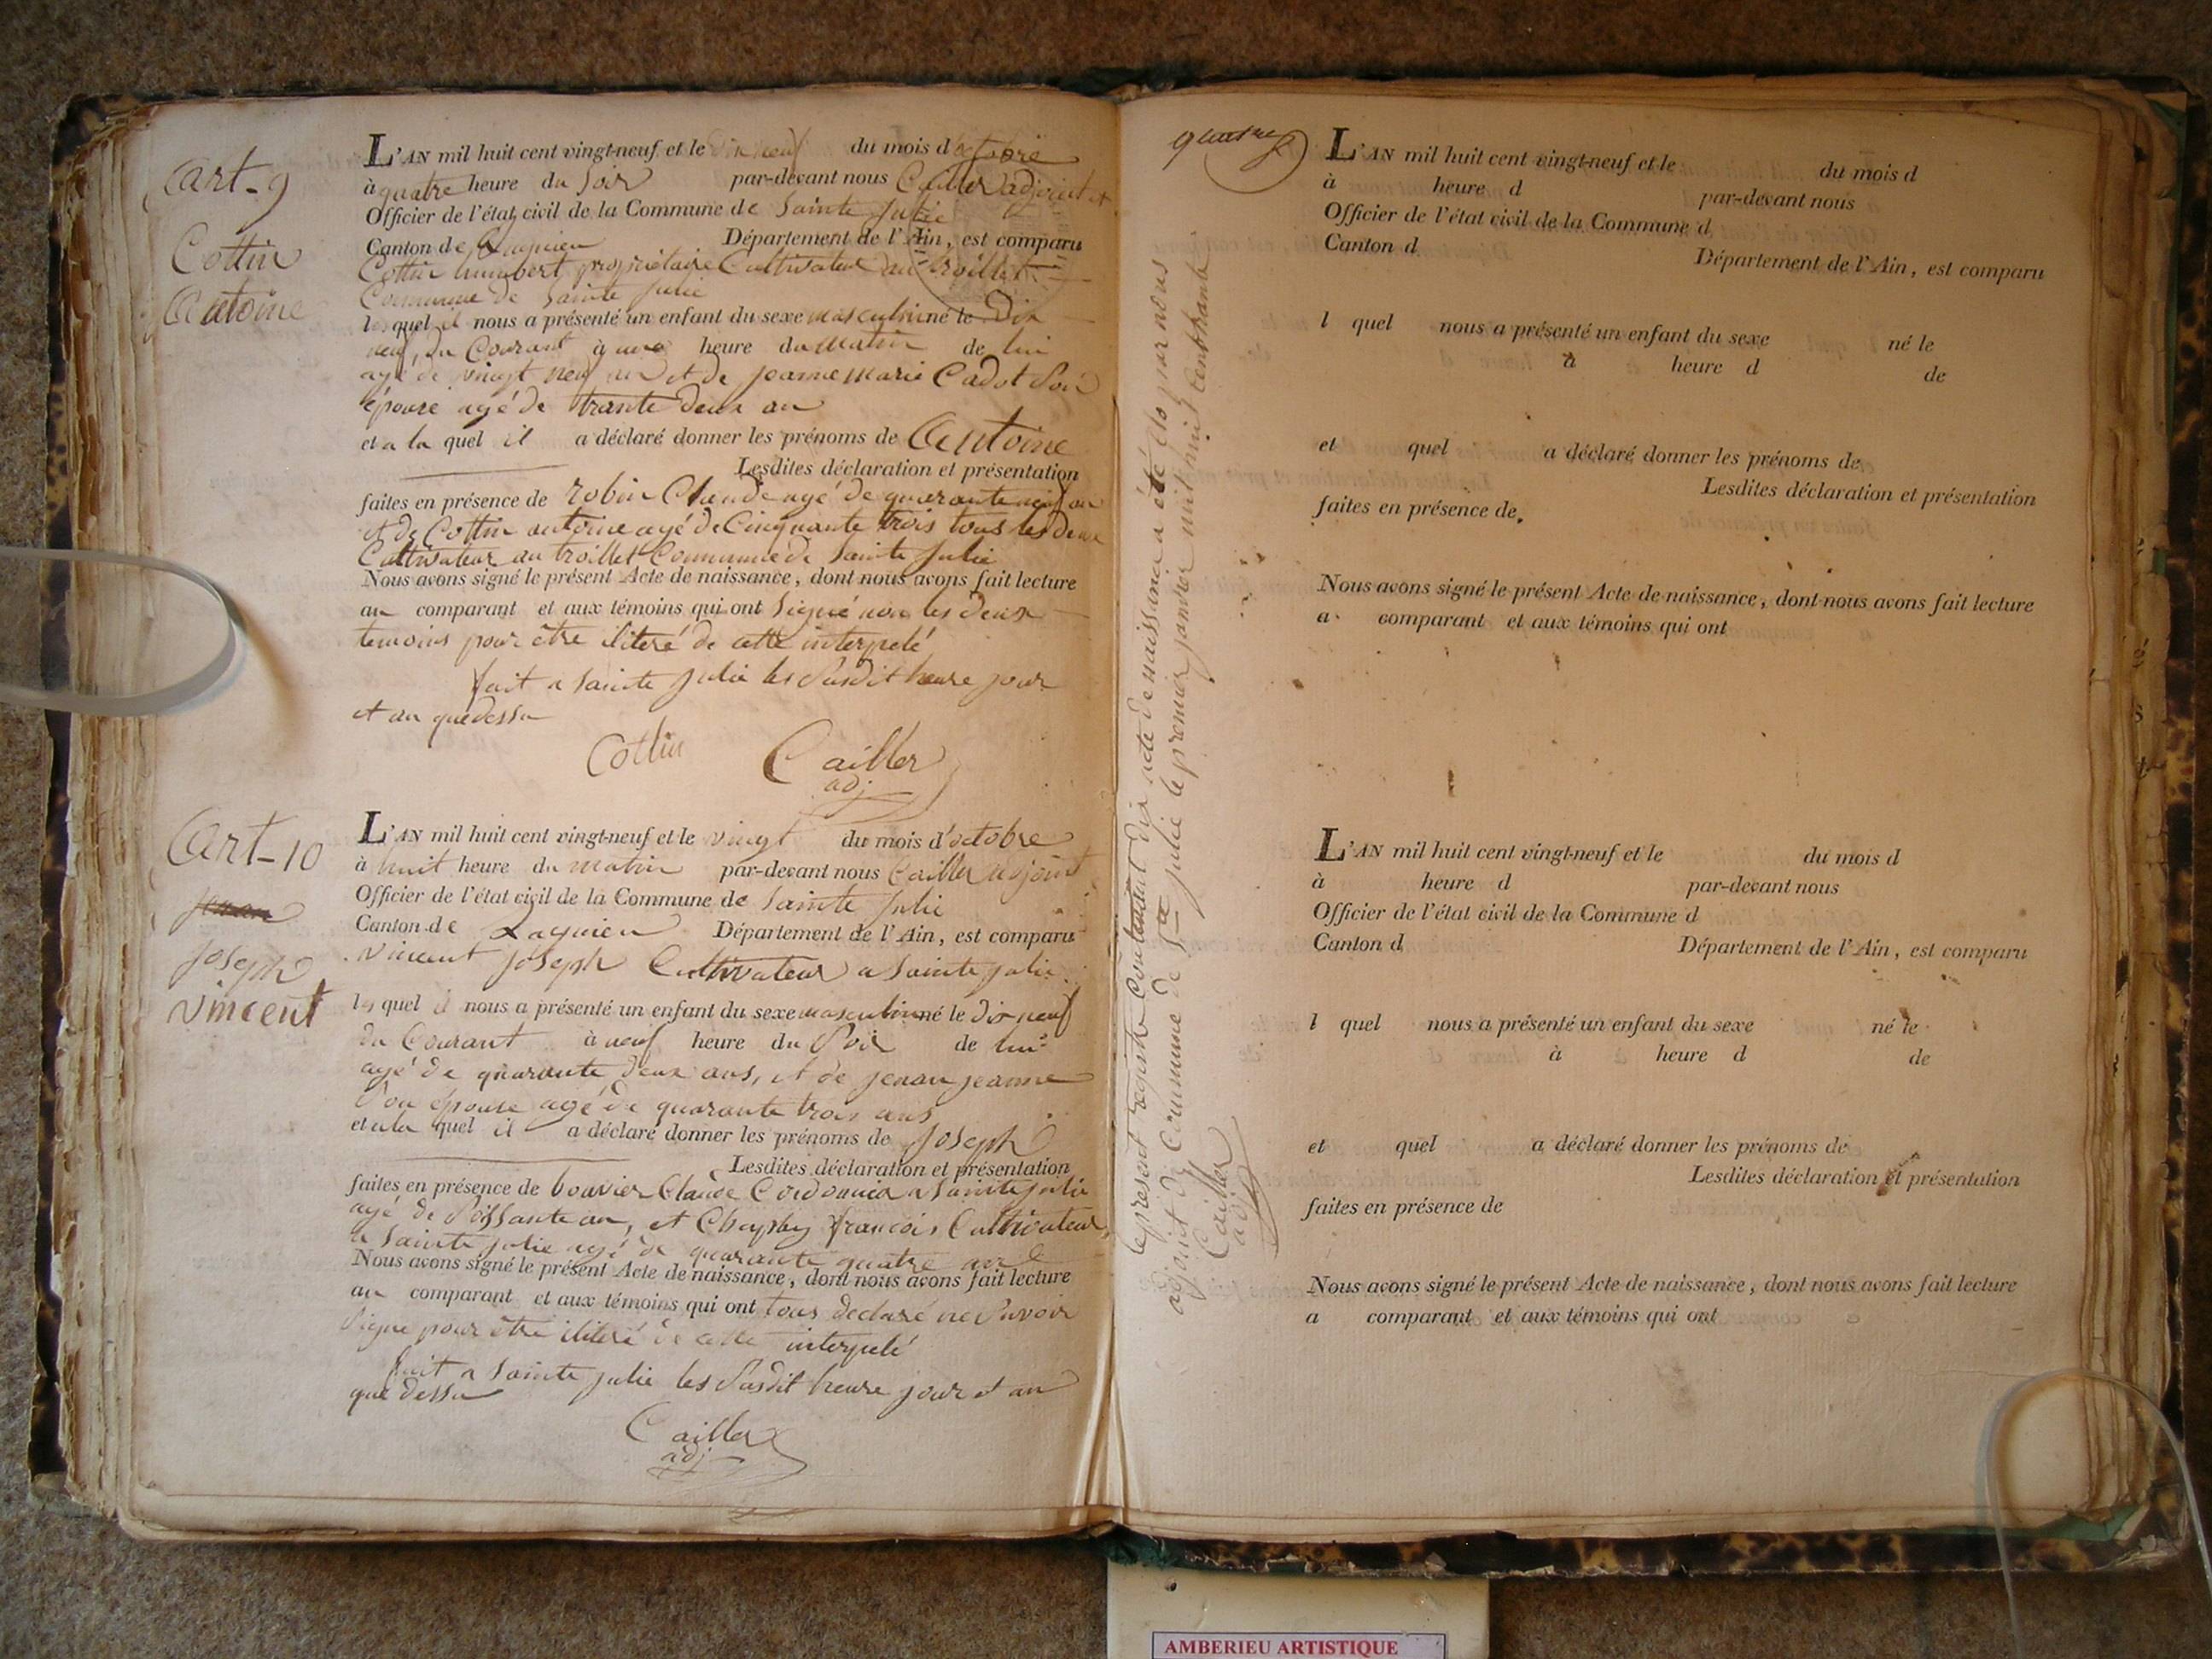 art-9
Cottin
Antoine
L'AN mil huit cent vingt-neuf et le dix neuf du mois d'octobre
à quatre heure du Soir par-devant nous Cailler adjoint
Officier de l'état civil de la Commune de Sainte Julie
Canton de Lagnieu Département de l'Ain, est comparu
Cottin humbert propriétaire Cultivateur au troillet
Commune de Sainte Julie
lequel il nous a présenté un enfant du sexe masculin né le Dix
neuf du Courant à une heure du matin de lui
agé de vingt neuf an et de jeanne marie Cadot Son
épouse agé de trante deux an
et a la quel il a déclaré donner les prénoms de Antoine
Lesdites déclaration et présentation
faites en présence de robin Claude agé de quarante neuf an
et de Cottin antoine agé de Cinquante trois tous les deux
Cultivateur au troillet Commune de Sainte Julie
Nous avons signé le présent Acte de naissance, dont nous avons fait lecture
au comparant et aux témoins qui ont Signé non les deux
temoins pour être iliteré de cette interpelé
fait a Sainte Julie les Susdit heure jour
et an que dessu
Cottin Cailler
adj
art-10
Joseph
vincent
L'AN mil huit cent vingt-neuf et le vingt du mois d'octobre
à huit heure du matin par-devant nous Cailler adjoint
Officier de l'état civil de la Commune de Sainte Julie
Canton de Lagnieu Département de l'Ain, est comparu
vincent Joseph Cultivateur a Sainte julie
lequel il nous a présenté un enfant du sexe masculin né le dix neuf
du Courant à neuf heure du Soir de lui
agé de quarante deux ans, et de jenan jeanne
Son épouse agé de quarante trois ans
et a la quel il a déclaré donner les prénoms de Joseph
Lesdites déclaration et présentation
faites en présence de bouvier Claude Cordonnier a Sainte julie
agé de Soissante an, et françois Cultivateur
a Sainte julie agé de quarante quatre an
Nous avons signé le présent Acte de naissance, dont nous avons fait lecture
au comparant et aux témoins qui ont tous declaré ne Savoir
Signe pour être iliteré de cette interpelé
fait a Sainte julie les Susdit heure jour et an
que dessu
Cailler
adj
le present registre Contenant dix acte de naissance a été clo par nous
adjoint de Commune de Ste julie le premier janvier mil huit cent trante
Cailler
adj
quatre
L'AN mil huit cent vingt-neuf et le du mois d
à heure d par-devant nous
Officier de l'état civil de la Commune d
Canton d Département de l'Ain, est comparu
l quel nous a présenté un enfant du sexe né le
à heure d de
et quel a déclaré donner les prénoms de
Lesdites déclaration et présentation
faites en présence de
Nous avons signé le présent Acte de naissance, dont nous avons fait lecture
a comparant et aux témoins qui ont
L'AN mil huit cent vingt-neuf et le du mois d
à heure d par-devant nous
Officier de l'état civil de la Commune d
Canton d Département de l'Ain, est comparu
l quel nous a présenté un enfant du sexe né le
à heure d de
et quel a déclaré donner les prénoms de
Lesdites déclaration et présentation
faites en présence de
Nous avons signé le présent Acte de naissance, dont nous avons fait lecture
a comparant et aux témoins qui ont
AMBERIEU ARTISTIQUE